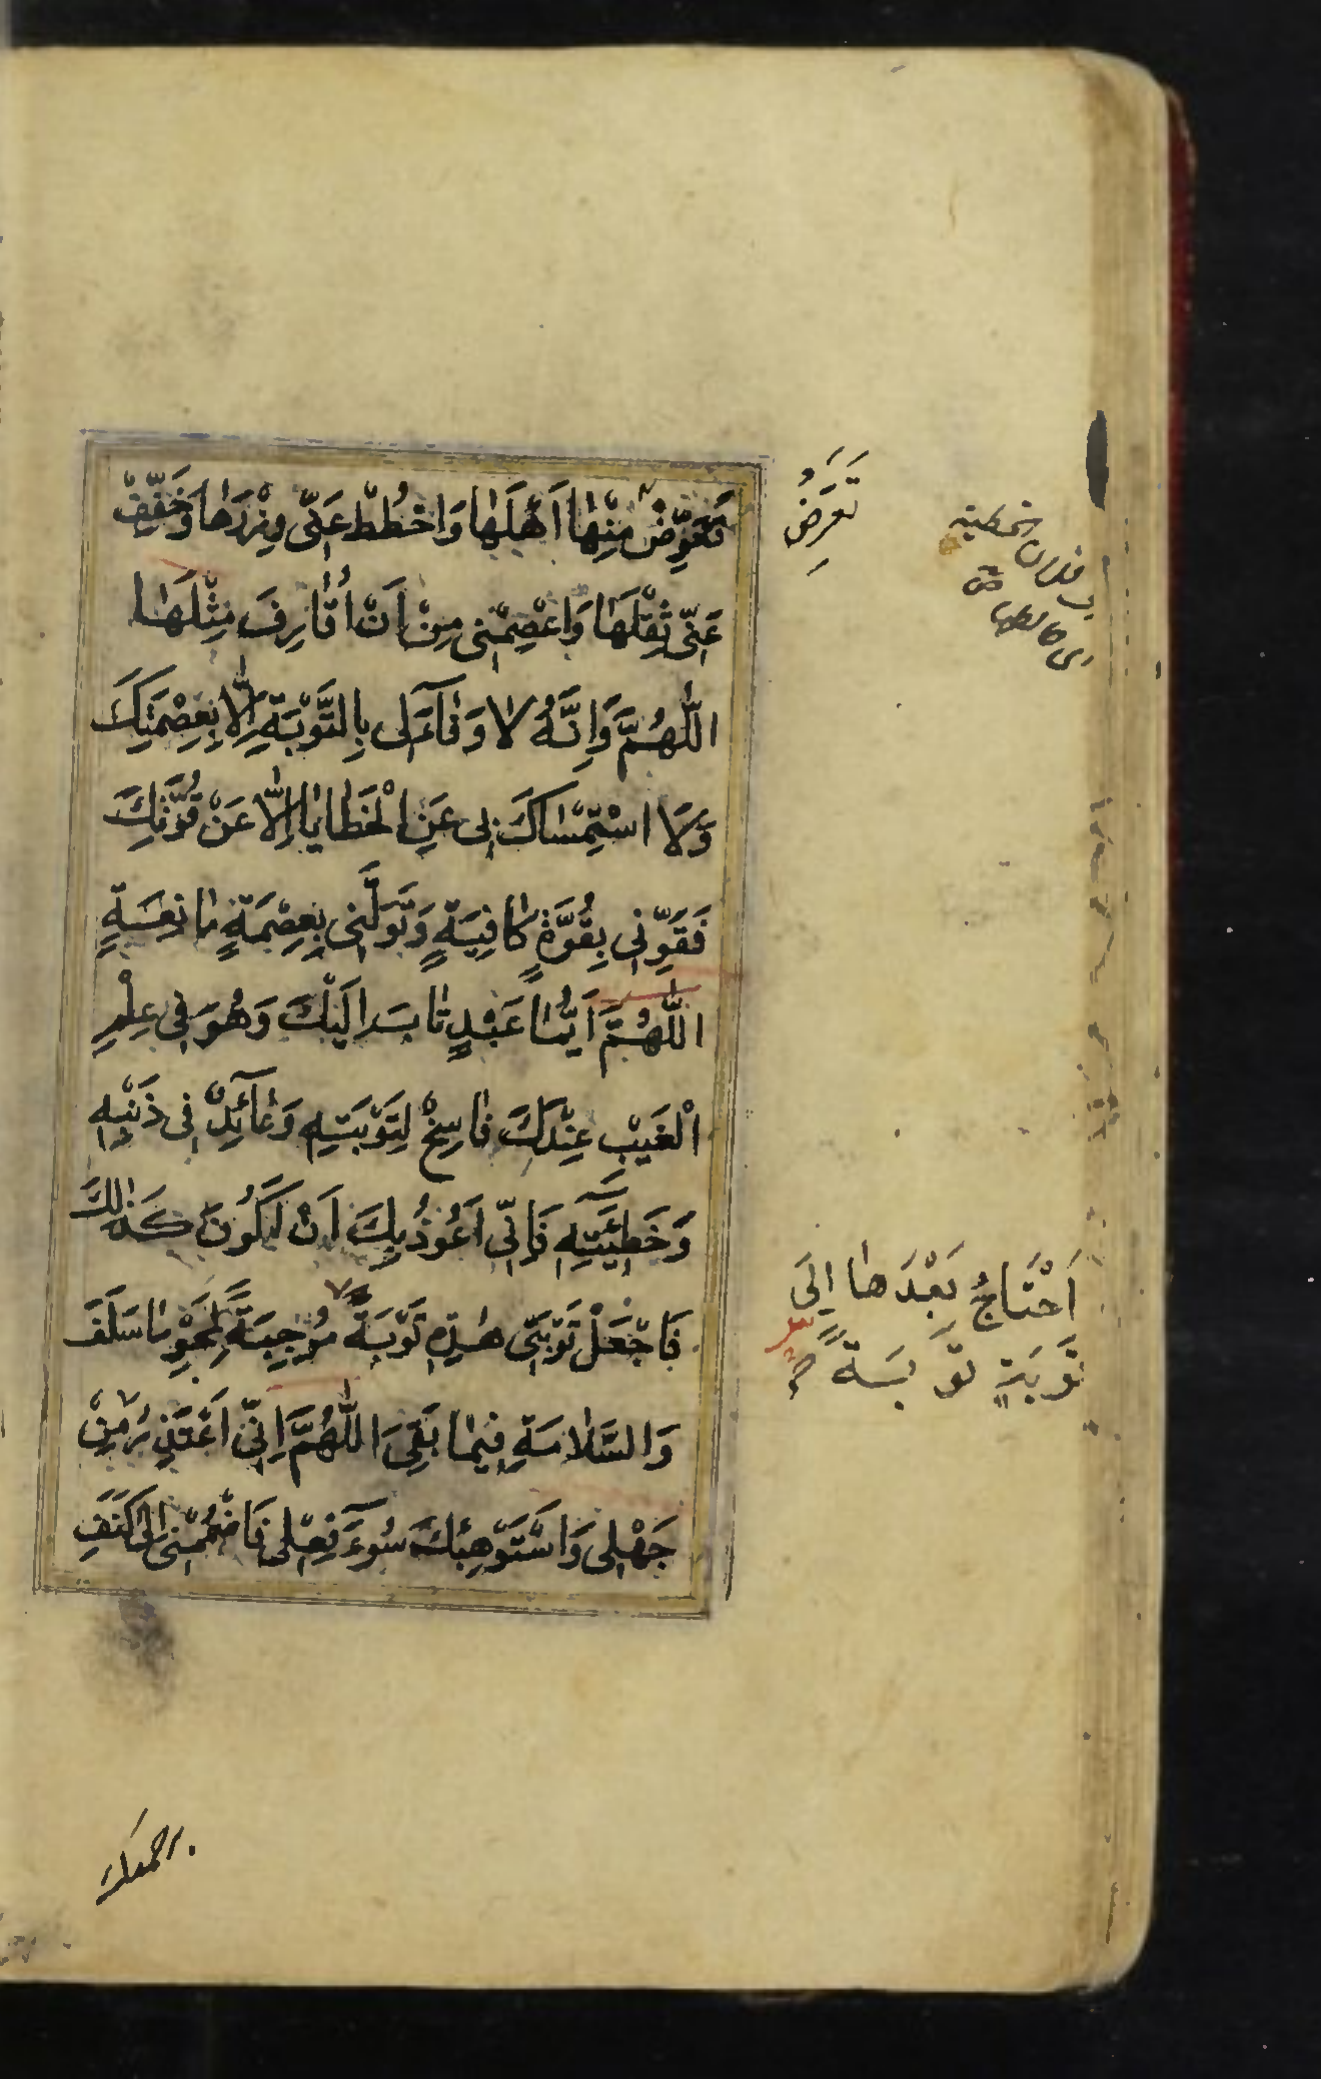 فَعَوِّضْ مِنْهٰا اَهْلَهٰا وَاحْطُطْ عَنّى وِزْرَهٰا وَخَفِّفْ
عَنّى ثِقْلَهٰا وَاعْصِمْنى مِنْ اَنْ اُقٰارِفَ مِثْلَهٰا
اللّٰهُمَّ وَاِنَّهُ لا وَفٰآءَ لى بِالتَّوْبَةِ اِلّٰا بِعِصْمَتِكَ
وَلَا اسْتِمْسٰاكَ بى عَنِ الْخَطٰايٰا اِلّٰا عَنْ قُوَّتِكَ
فَقَوِّنى بِقُوَّةٍ كٰافِيَةٍ وَتَوَلَّنى بِعِصْمَةٍ مٰانِعَةٍ
اللّٰهُمَّ اَيُّمٰا عَبْدٍ تٰابَ اِلَيْكَ وَهُوَ فى عِلْمِ
الْغَيْبِ عِنْدَكَ فٰاسِخٌ لِتَوْبَتِهِ وَعٰآئِدٌ فى ذَنْبِهِ
وَخَطيٓئَتِهِ فَاِنّى اَعُوذُ بِكَ اَنْ اَكُونَ كَذٰلِكَ
فَاجْعَلْ تَوْبَتى هٰذِهِ تَوْبَةً مُوجِبَةً لِمَحْوِ مٰا سَلَفَ
وَالسَّلٰامَةِ فيمٰا بَقِىَ اَللّٰهُمَّ اِنّى اَعْتَذِرُ مِنْ
جَهْلى وَاَسْتَوْهِبُكَ سُوٓءَ فِعْلى فَاضْمُمْنى اِلىٰ كَنَفِ
تَعَرَّضُ
اَحْتٰاجُ بَعْدَهٰا اِلىَ
تَوْبَةٍ تَوْبَةً
رحمتك